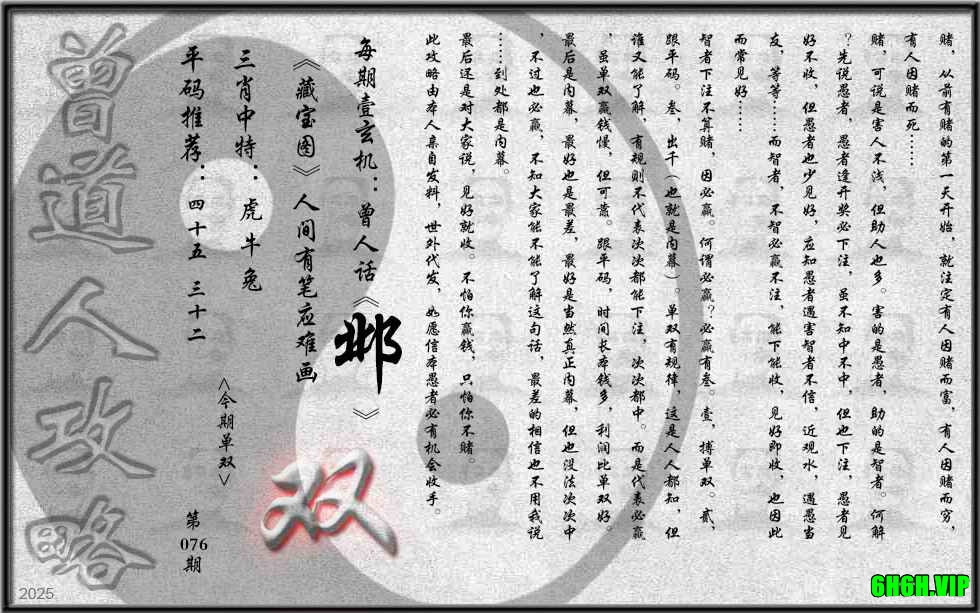 赌，从前有赌的第一天开始，就注定有人因赌而富，有人因赌而穷，
有人因赌而死……
赌，可说是害人不浅，但助人也多。害的是愚者，助的是智者。何解
？先说愚者，愚者逢开奖必下注，虽不知中不中，但也下注，愚者见
好不收，但愚者也少见好，应知愚者遇害智者不信，近观水，遇愚当
友，等等……而智者，不智必赢不注，能下能收，见好即收，也因此
而常见好……
智者下注不算赌，因必赢。何谓必赢？必赢有叁。壹，搏单双。贰，
跟平码。叁，出千（也就是内幕）。单双有规律，这是人人都知，但
谁又能了解，有规则不代表次次都能下注，次次都中。而是代表必赢
，虽单双赢钱慢，但可靠。跟平码，时间长本钱多，利润比单双好。
最后是内幕，最好也是最差，最好是当然真正内幕，但也没法次次中
，不过也必赢，不知大家能不能了解这句话，最差的相信也不用我说
……到处都是内幕。
最后还是对大家说，见好就收。不怕你赢钱，只怕你不赌。
此攻略由本人亲自发料，世外代发，如愿信本愚者必有机会收手。
每期壹玄机：曾人话《邺》
《藏宝图》人间有笔应难画
三肖中特：虎牛兔
平码推荐：四十五 三十二
<今期单双>
双
第076期
曾道人攻略
2025
6H6H.VIP